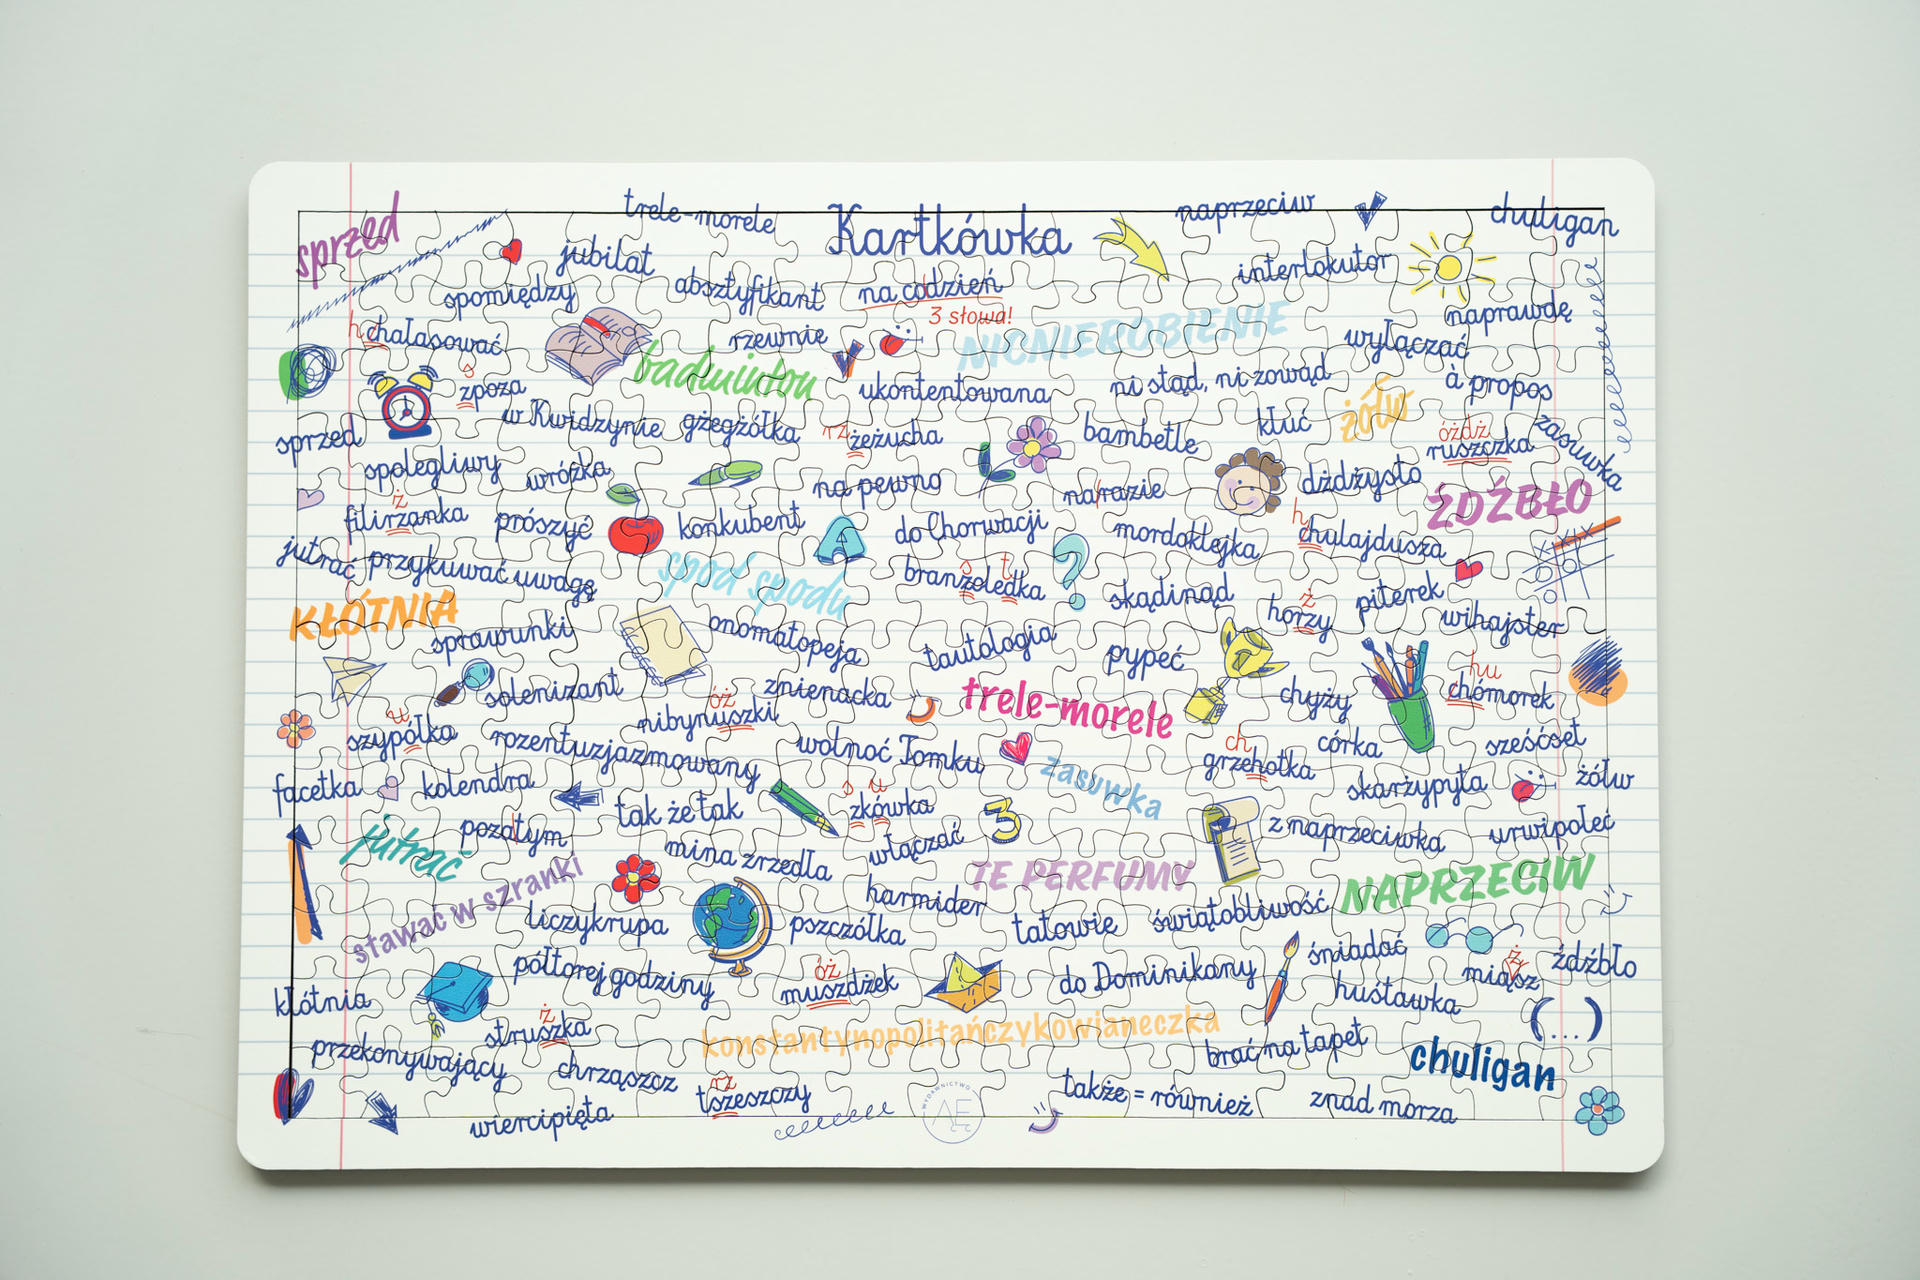 sprzed
trele-morele
Kartkówka
naprzeciw
chuligan
jubilat
interlokutor
spomiędzy
absztyfikant
na codzień
3 słowa!
naprawdę
h
chałasować
rzewnie
NICNIEROBIENIE
wyłączać
badminton
s
zpoza
ukontentowana
ni stąd, ni zowąd
à propos
żółw
w Kwidzynie
gżegżółka
rz
żeżucha
bambetle
kłuć
óżdż
ruszczka
zasuwka
sprzed
spolegliwy
wróżka
na pewno
narazie
dżdżysto
ŹDŹBŁO
ż
filirzanka
prószyć
konkubent
do Chorwacji
mordoklejka
h
chulajdusza
jutrać
przykuwać uwagę
spod spodu
s t
branzoledka
?
skądinąd
ż
horzy
piterek
wihajster
KŁÓTNIA
sprawunki
onomatopeja
tautologia
pypeć
solenizant
znienacka
trele-morele
chyży
hu
chómorek
óż
nibynuszki
u
szypółka
rozentuzjazmowany
wolnoć Tomku
ch
grzehotka
córka
sześćset
zasuwka
facetka
kolendra
tak że tak
s u
zkówka
3
skarżypyta
żółw
jutrać
pozatym
mina zrzedła
włączać
z naprzeciwka
urwipołeć
stawać w szranki
TE PERFUMY
NAPRZECIW
harmider
liczykrupa
pszczółka
tatowie
świątobliwość
śniadać
ż
miąsz
źdźbło
półtorej godziny
óż
muszdżek
do Dominikany
huśtawka
kłótnia
(...)
ż
struszka
konstantynopolitańczykowianeczka
brać na tapet
chuligan
przekonywający
chrząszcz
rz
tszeszczy
także = również
znad morza
wiercipięta
WYDAWNICTWO